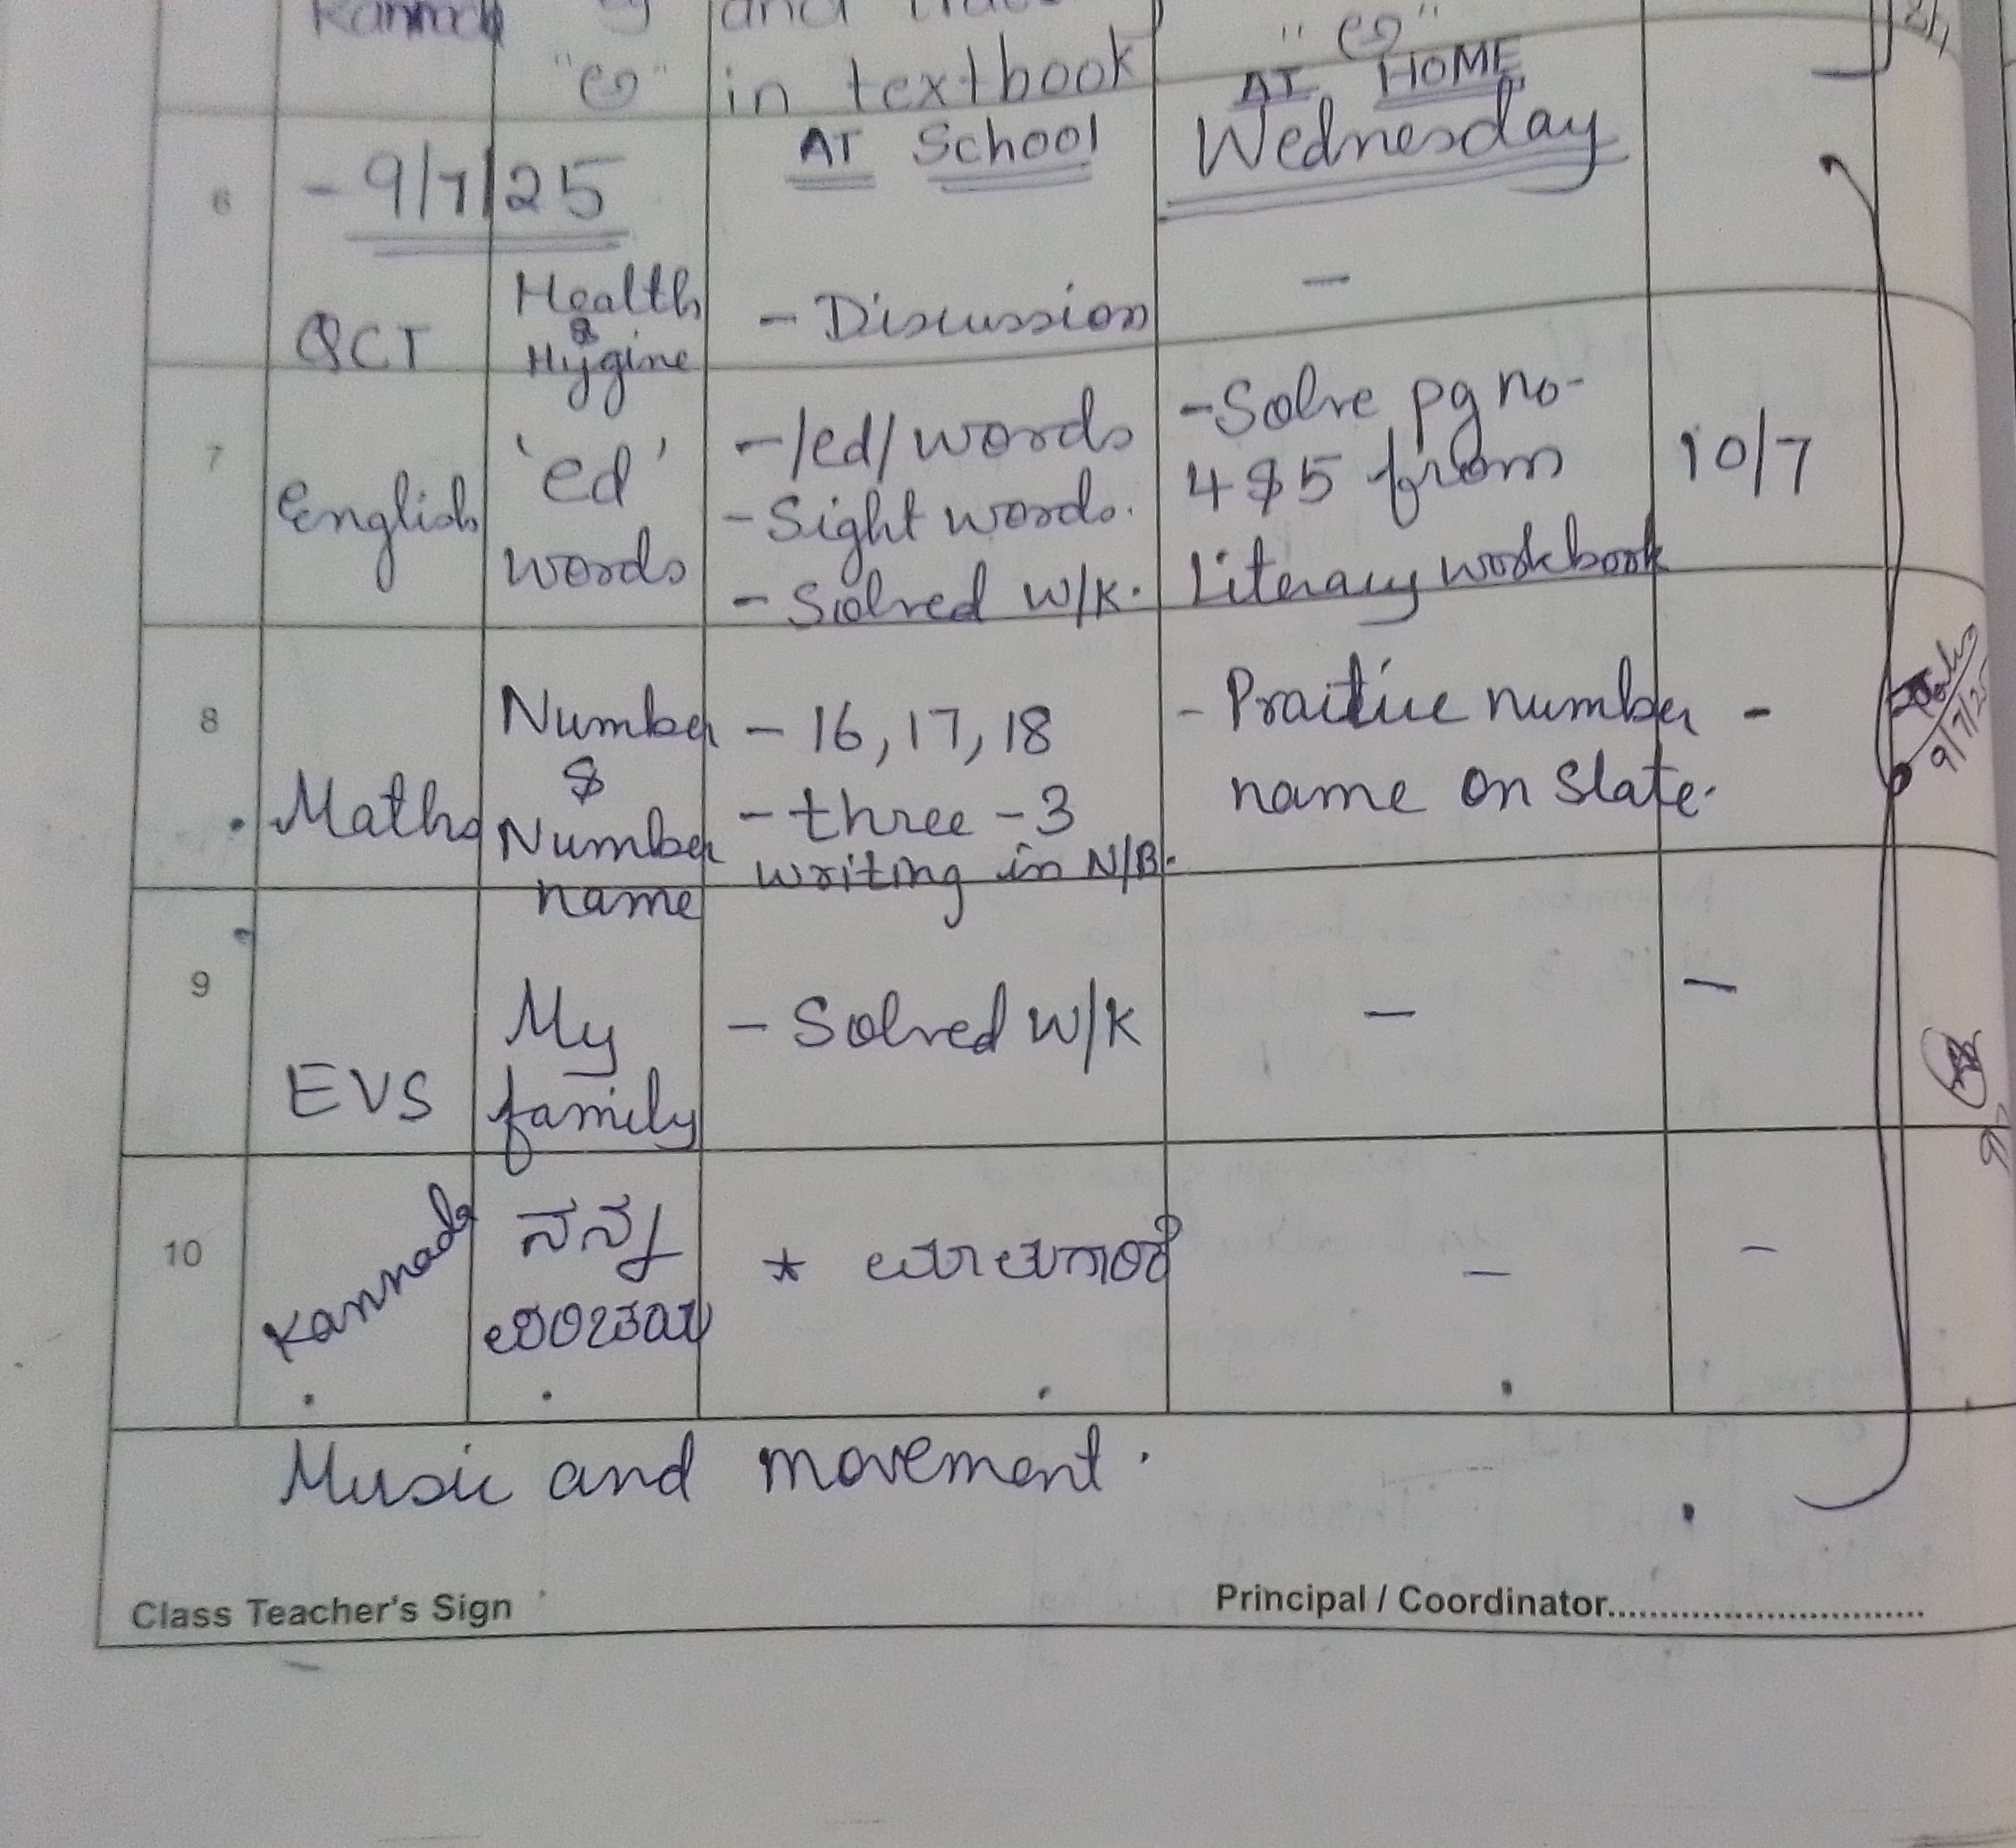 "అ"
in textbook
" అ "
AT HOME
6
- 9/7/25
AT School
Wednesday
QCT
Health
&
Hygine
- Discussion
-
7
English
'ed'
words
- /ed/ words
- Sight words.
- Solved w/k.
- Solve pg no-
4 & 5 from
Literacy workbook
10/7
8
Maths
Number
&
Number
name
- 16, 17, 18
- three - 3
writing in N/B.
- Practice number
name on slate.
-
9/7/25
9
EVS
My
family
- Solved w/k
-
-
10
Kannada
ನನ್ನ
ಪರಿಚಯ
*
-
-
Music and movement.
Class Teacher's Sign
Principal / Coordinator..............................